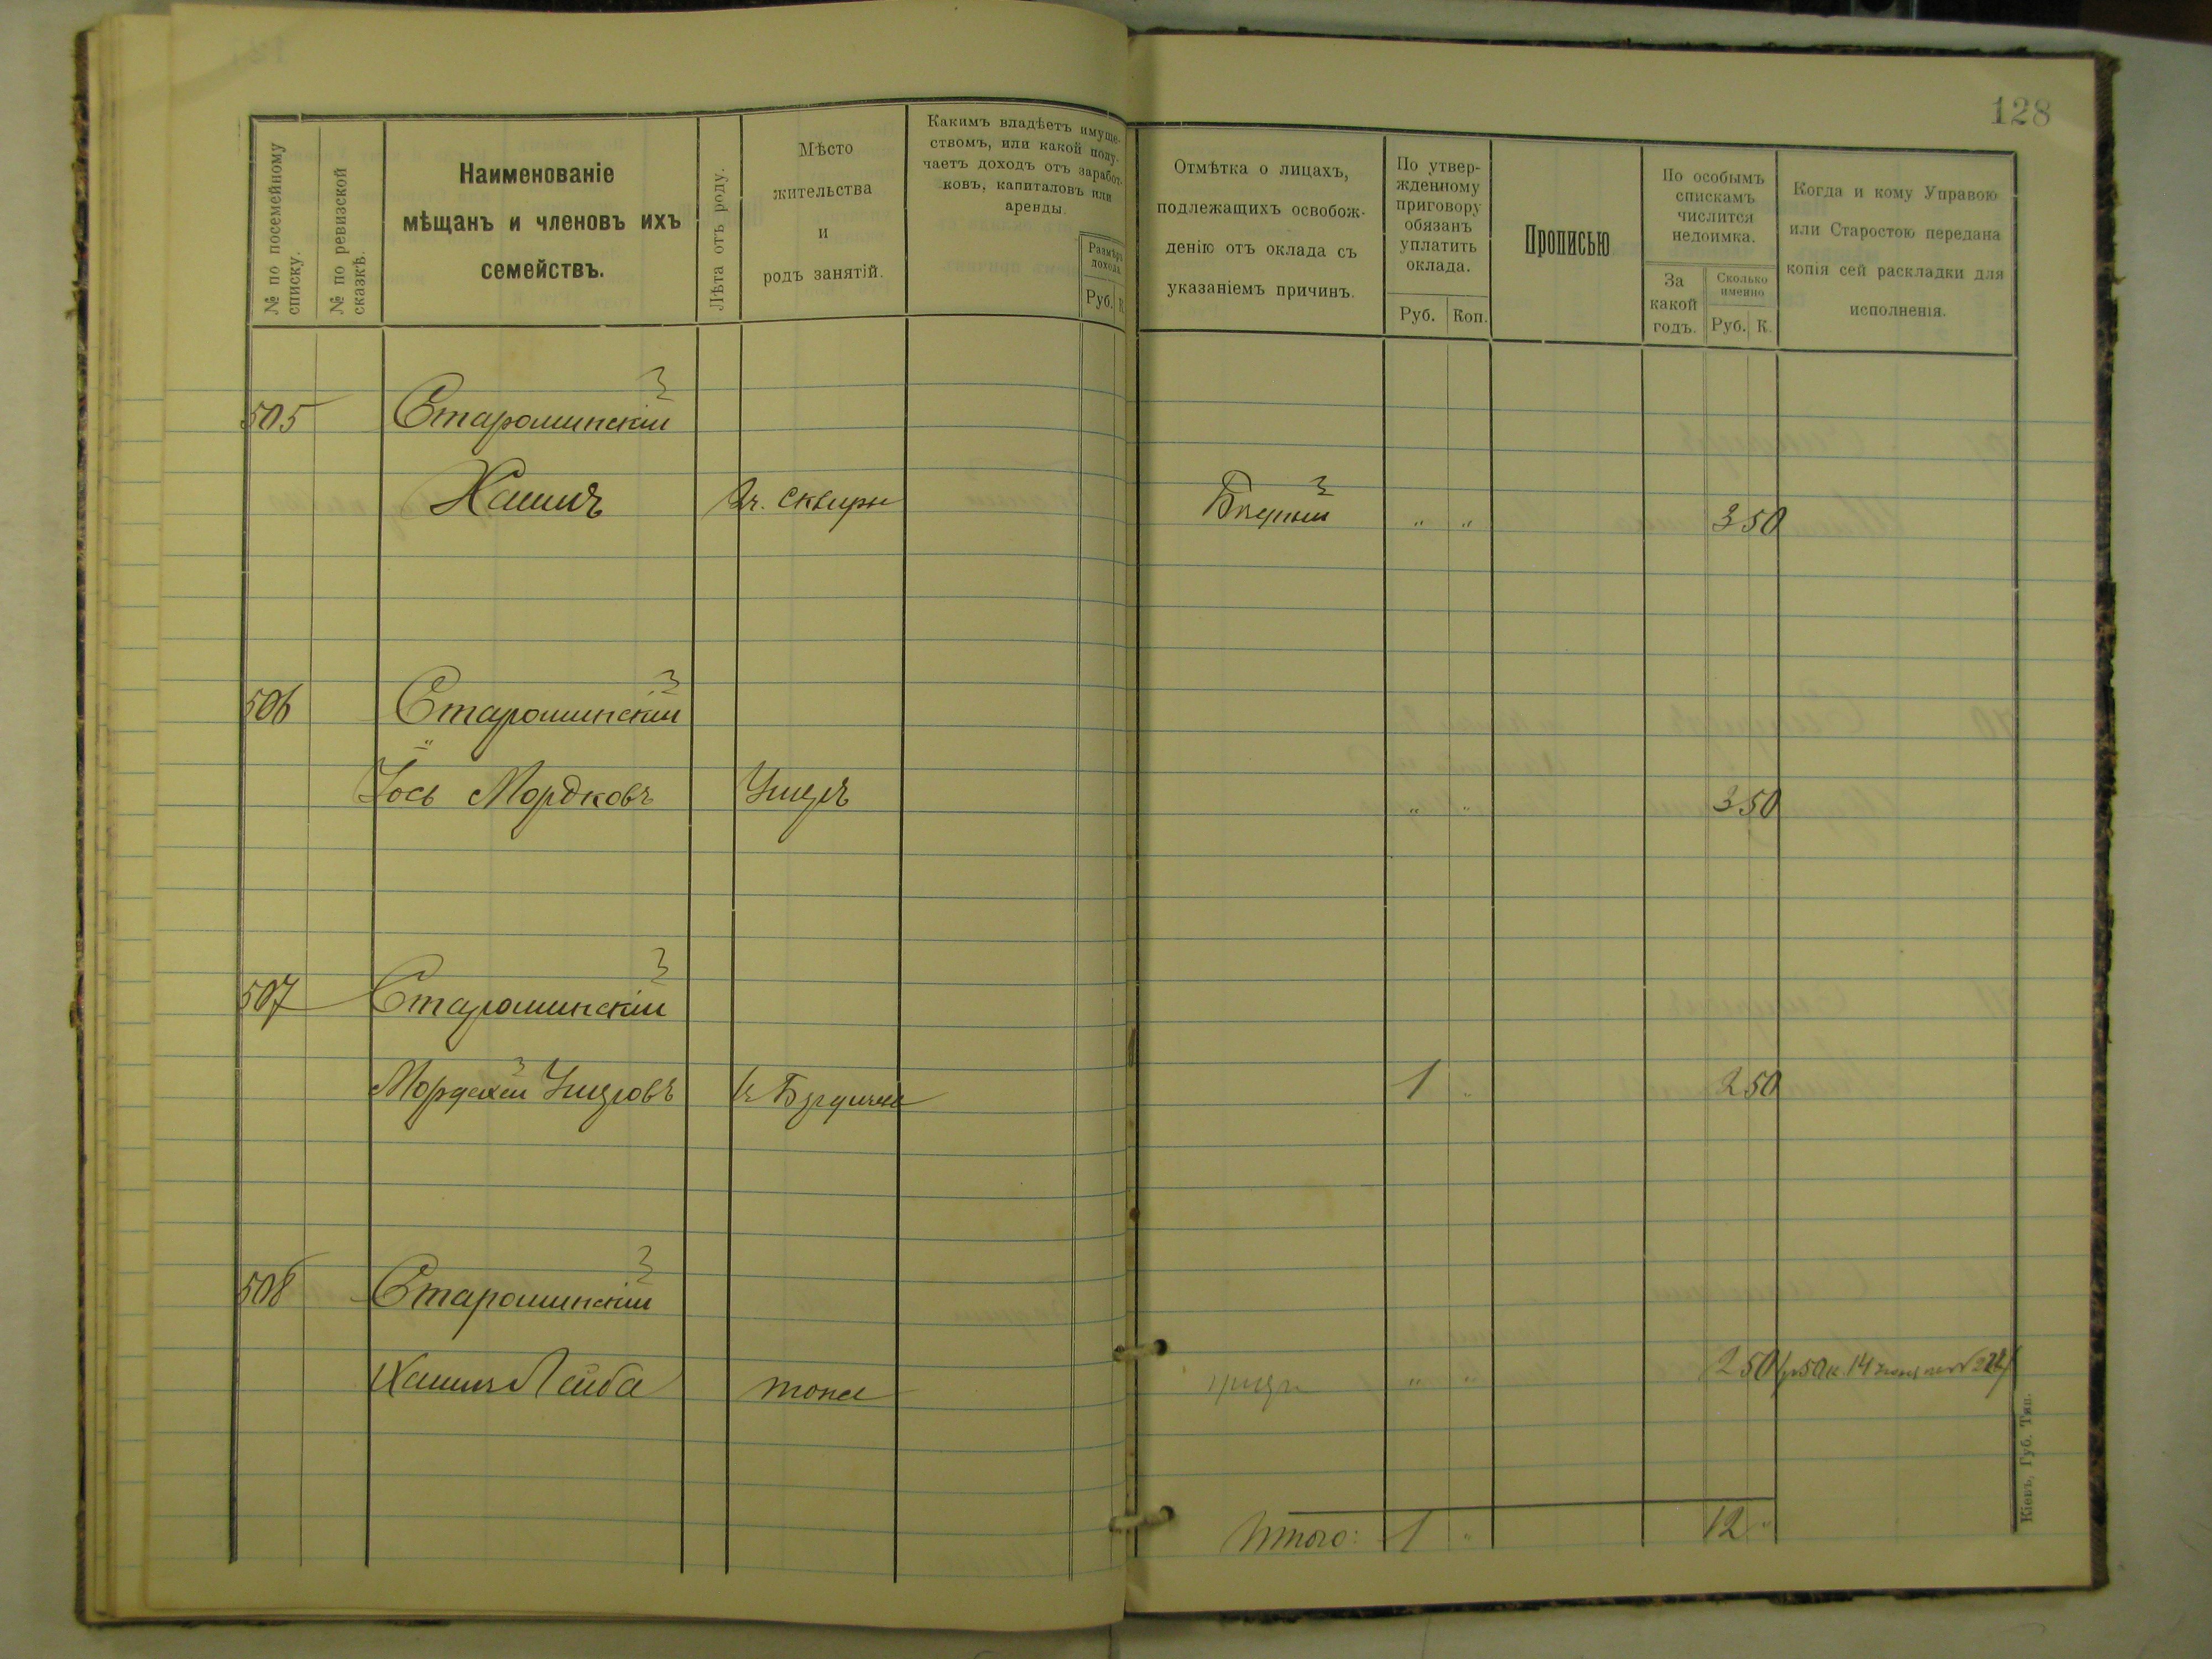 128
№ по посемейному списку.
№ по ревизской сказкѣ.
Наименованіе
мѣщанъ и членовъ ихъ
семействъ.
Лѣта отъ роду.
Мѣсто
жительства
и
родъ занятій.
Какимъ владѣетъ имуще-
ствомъ, или какой полу-
чаетъ доходъ отъ заработ-
ковъ, капиталовъ или
аренды.
Размѣръ
дохода
Руб. К
Отмѣтка о лицахъ,
подлежащихъ освобож-
денію отъ оклада съ
указаніемъ причинъ.
По утвер-
жденному
приговору
обязанъ
уплатить
оклада.
Руб. Коп.
Прописью
По особымъ
спискамъ
числится
недоимка.
За
какой
годъ.
Сколько
именно
Руб. К.
Когда и кому Управою
или Старостою передана
копія сей раскладки для
исполненія.
505 Старошинскій
Хаимъ Вч. Сквиры Бѣдный " " 3 50
506 Старошинскій
Іось Мордковъ " " 3 50
507 Старошинскій
Мордехай 1 " 2 50
508 Старошинскій
Хаимъ Лейба тоже " " 2 50
Итого: 1 " 12 "
Кіевъ, Губ. Тип.